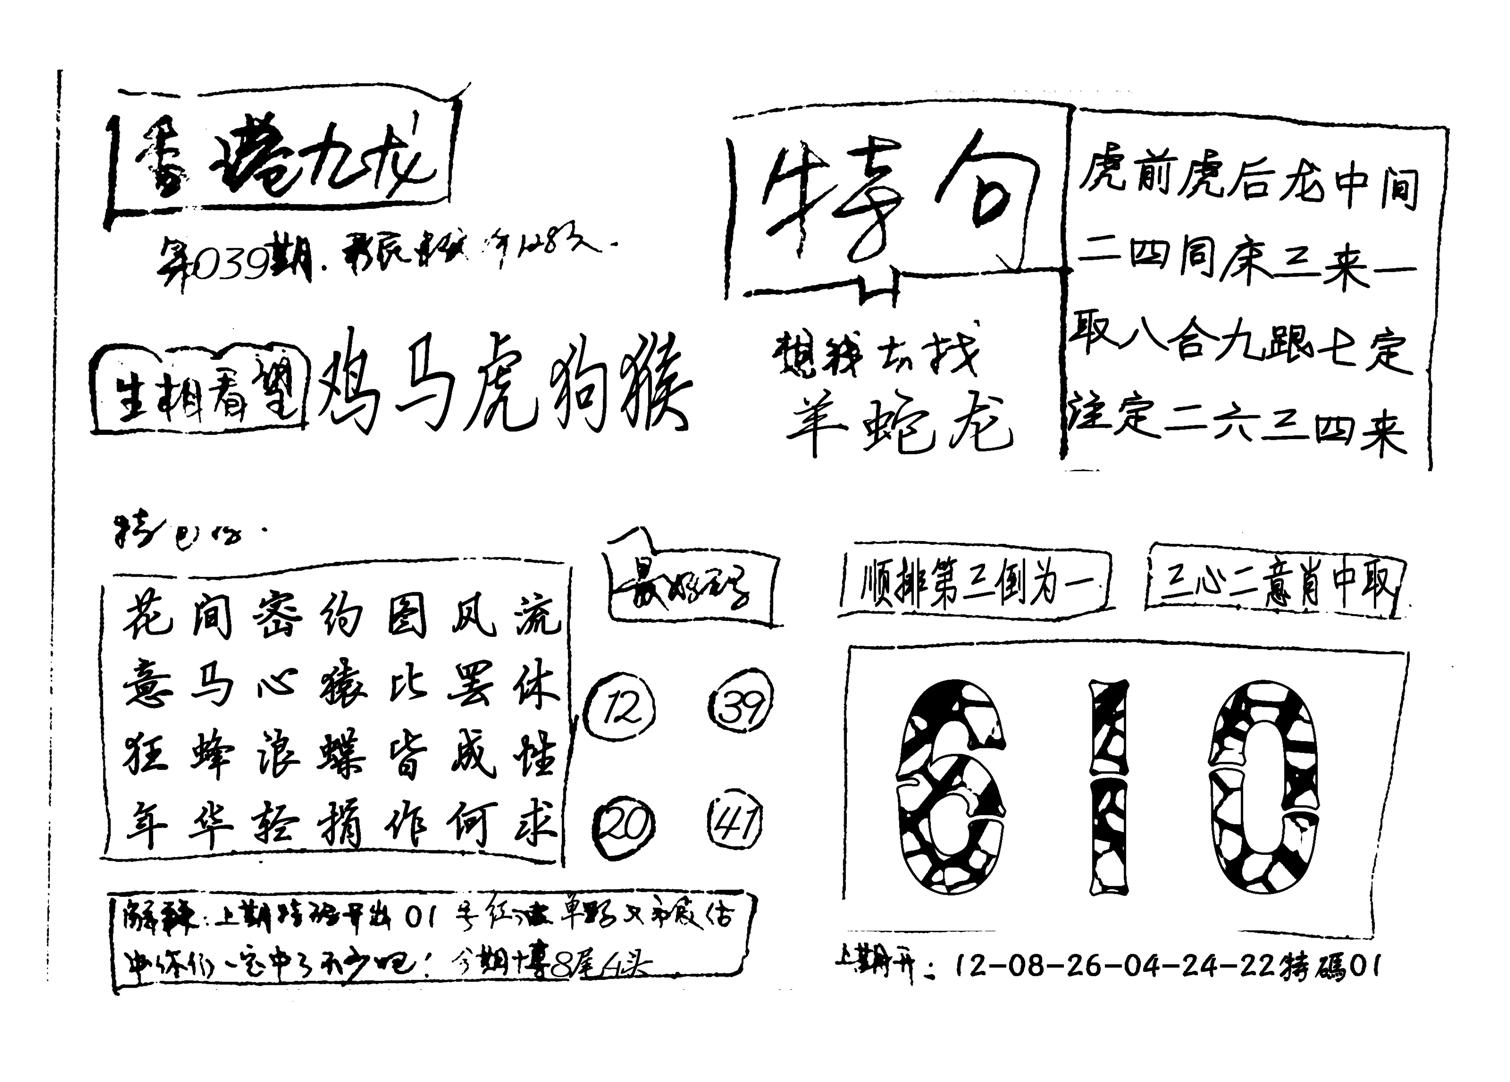 香港九龙
第039期.
生相看望
鸡马虎狗猴
特句
想钱去找
羊蛇龙
虎前虎后龙中间
二四同床三来一
取八合九跟七定
注定二六三四来
花间密约图风流
意马心猿比罢休
狂蜂浪蝶皆成性
年华轻捐作何求
最好码
12 39
20 41
顺排第三倒为一
三心二意肖中取
610
上期特码开出01号红波单
你们一定中了不少吧！今期博8尾4头
上期开：12-08-26-04-24-22特碼01